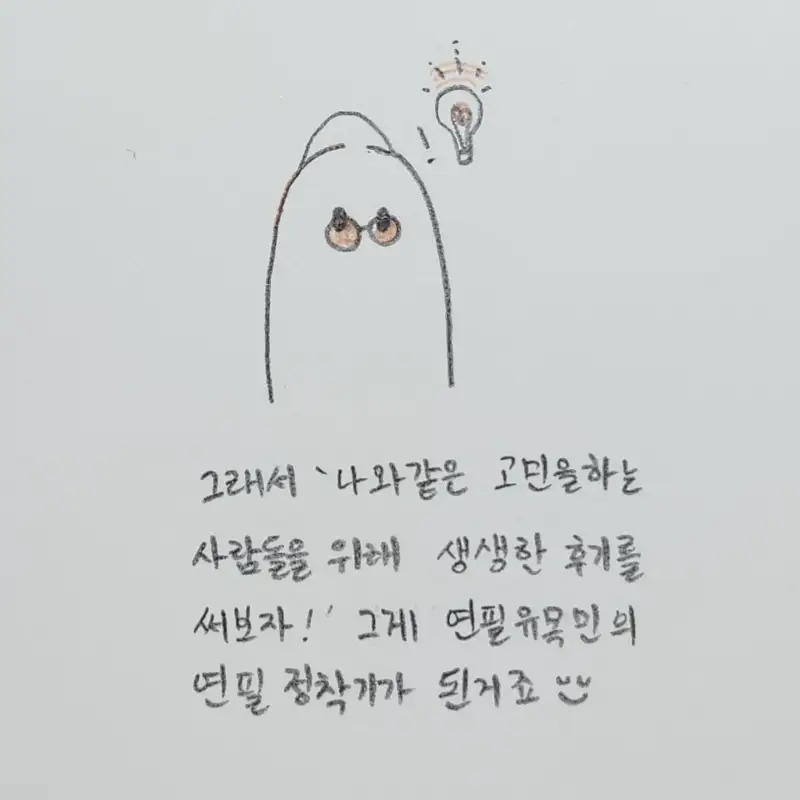 그래서 '나와같은 고민을하는
사람들을 위해 생생한 후기를
써보자!' 그게 연필유목민의
연필 정착기가 된거죠